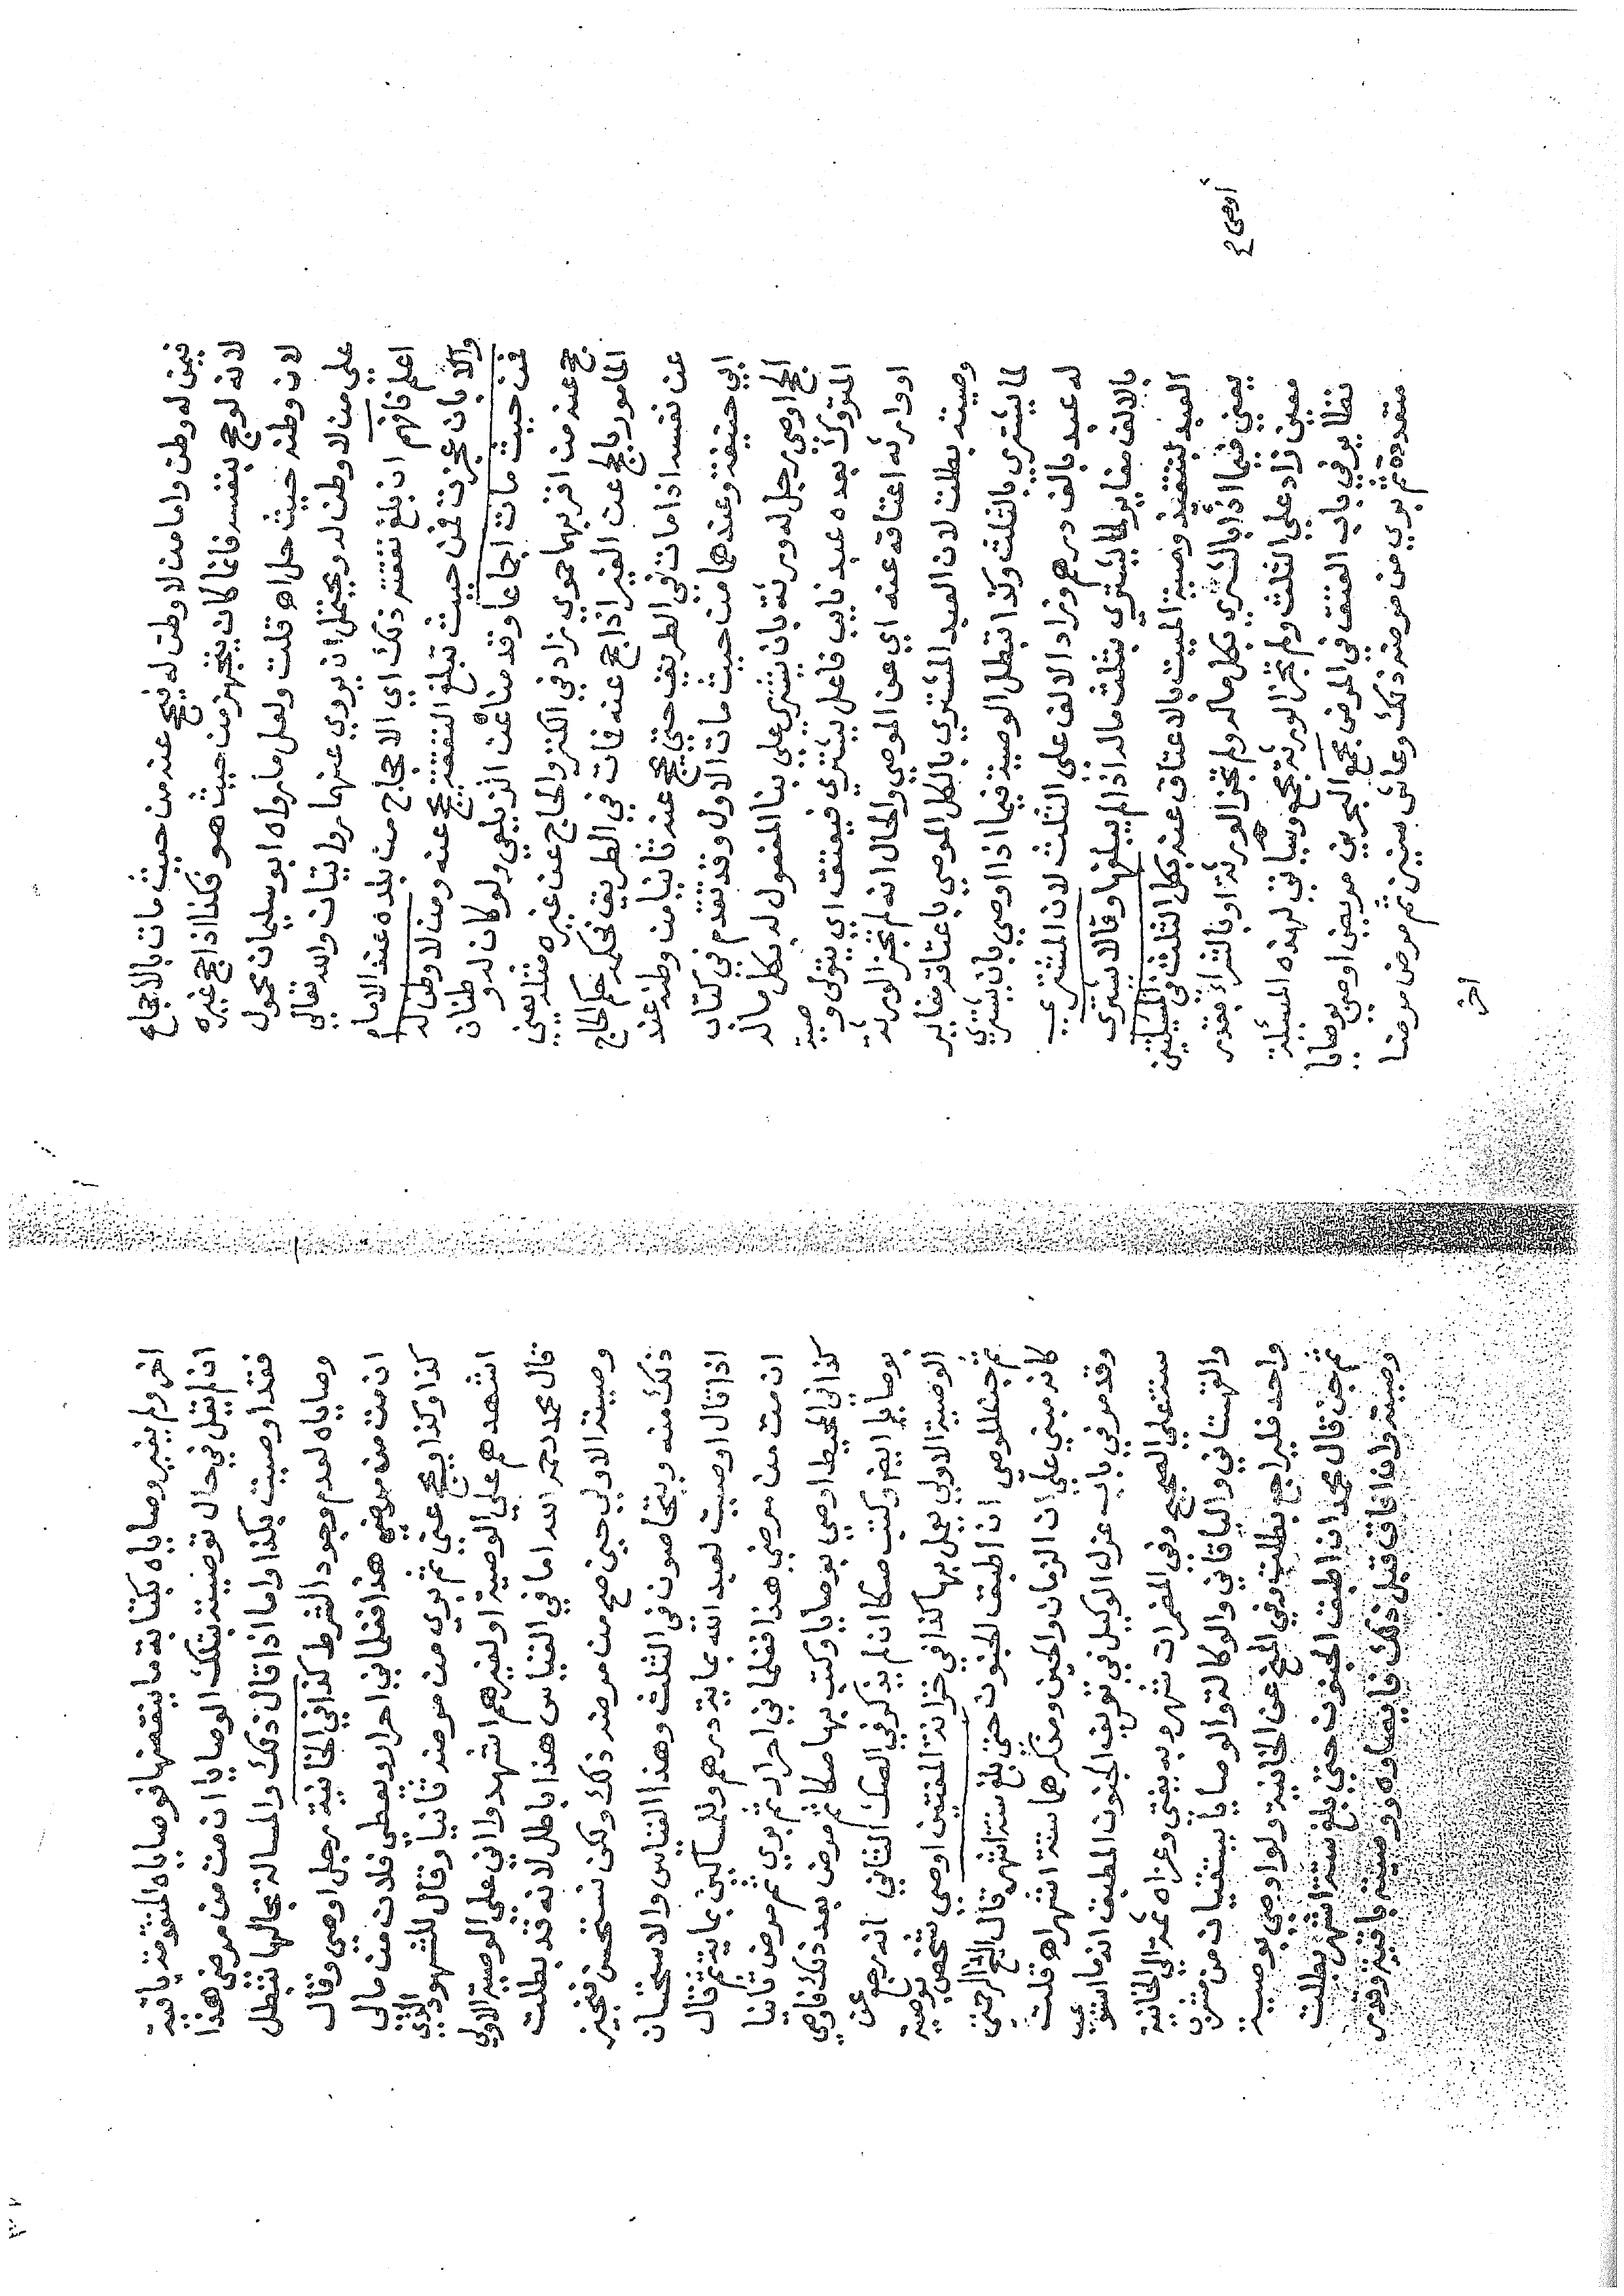 فيمن له وطن واما من لا وطن له فيحج عنه من حيث مات بالاجماع
لانه لو حج بنفسه فانما كان يتجهز من حيث هو فكذا اذا حج غيره
لان وطنه حيث حل اه قلت ولعل ما رواه ابو سليمان محمول
على من لا وطن له ويحتمل ان يروي عنهما روايتان والله تعالى
اعلم فافهم ان بلغ نفقته ذلك اي الاحجاج من بلده عند الامام
والا بان عجزت فمن حيث تبلغ النفقة يحج عنه ومن لا وطن له
فمن حيث مات اجماعا وقدمنا عن الزيلعي ولو كان له وطنان
يحج عنه من اقربهما حموي زاد في الكنز والحاج عن غيره مثله يعني
المامور بالحج عن الغير اذا حج عنه فمات في الطريق فحكمه حكم الحاج
عن نفسه اذا مات في الطريق حتى يحج عنه ثانيا من وطنه عند
ابي حنيفة وعندهما من حيث مات الاول وقد تقدم في كتاب
الحج اوصى رجل له ورثة بان يشتري على بنا المفعول له بكل ماله
المتروك بعده عبد نايب فاعل يشتري فيعتق اي يتولى وصية
او وارثه اعتاقه عنه اي عن الموصي والحال انه لم تجز الورثة
وصيته بطلت لان العبد المشتري بالكل الموصي باعتاقه مغاير
لما يشتري بالثلث وكذا تبطل الوصية فيما اذا اوصى بان يشتري
له عبد بالف درهم وزاد الالف على الثلث لان المشتري
بالالف مغاير لما يشتري بثلث ماله اذا لم يبلغها وقالا يشتري
العبد لتنفيذ وصية الميت بالاعتاق عنه بكل الثلث في المسالتين
يعني فيما اذا بالشري بكل ماله ولم تجز الورثة او بالشراء بقدر
أوصى
معين زاد على الثلث ولم تجز الورثة مجمع وسياتي لهذه المسئلة
نظاير في باب العتق في المرض مجمع البحرين مريض اوصى بوصايا
متعددة ثم بري من مرضه ذلك وعاش سنين ثم مرض مرضا
اخر
اخر ولم يغير وصاياه بكتابة ما ينقضها فوصاياه المتقدمة باقية
ان لم يقل في حال توصيته بتلك الوصايا ان مت من مرضي هذا
فقد اوصيت بكذا واما اذا قال ذلك والمسالة بحالها تبطل
وصاياه لعدم وجود الشرط كذا في الخانية رجل اوصى وقال
ان مت من مرضي هذا فغلماني احرار ويعطى فلان من مالي
كذا وكذا ويحج عني ثم بري من مرضه ثانيا وقال للشهود الذي
اشهدهم على الوصية او لغيرهم اشهدوا اني على الوصية الاولى
قال محمد رحمه الله اما في القياس هذا باطل لانه قد بطلت
وصيته الاولى حين صح من مرضه ذلك ولكن نستحسن فنجيز
ذلك منه ويتحاصون في الثلث وهذا القياس والاستحسان
اذا قال اوصيت لعبد الله بماية درهم وللمساكين بماية ثم قال
ان مت من مرضي هذا فغلماني احرار ثم بري ثم مرض ثانيا
كذا في المحيط اوصى بوصايا وكتب بها صكا ثم مرض بعد ذلك فاوصى
بوصايا ايضا وكتب صكا ان لم يذكر في الصك الثاني انه رجع عن
الوصية الاولى يعمل بها كذا في خزانة المفتين اوصى شخص بوصية
ثم جن الموصي ان اطبق الجنون حتى بلغ ستة اشهر قال الرحمتي
كانه مبني على ان الزمان والحين ومنكرهما ستة اشهر اه قلت
وقد مر في باب عزل الوكيل في تعريف الجنون المطبق انه ما استوعب
سنة على الصحيح وفي المضمرات شهر وبه يفتى وعزاه ثمة الى الخانية
والقهستاني والباقاني والوكالة والوصايا يستقيان من مشرب
واحد فليراجع بطلت وفي المنح عن الخانية ولو اوصى بوصية
ثم جن قال محمد ان اطبق الجنون حتى بلغ ستة اشهر بطلت
وصيته وان افاق قبل ذلك فايصاوه ووصيته باقية وقدر